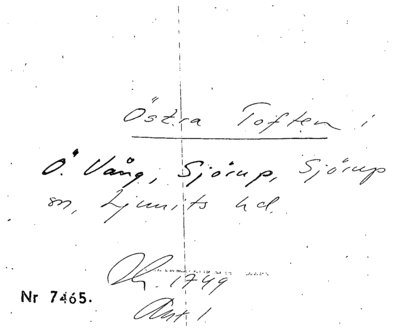 Östra Toften i
Ö. Vång, Sjörup, Sjörup
sn, Ljunits hd.
1749
Akt 1.
Nr 7465.